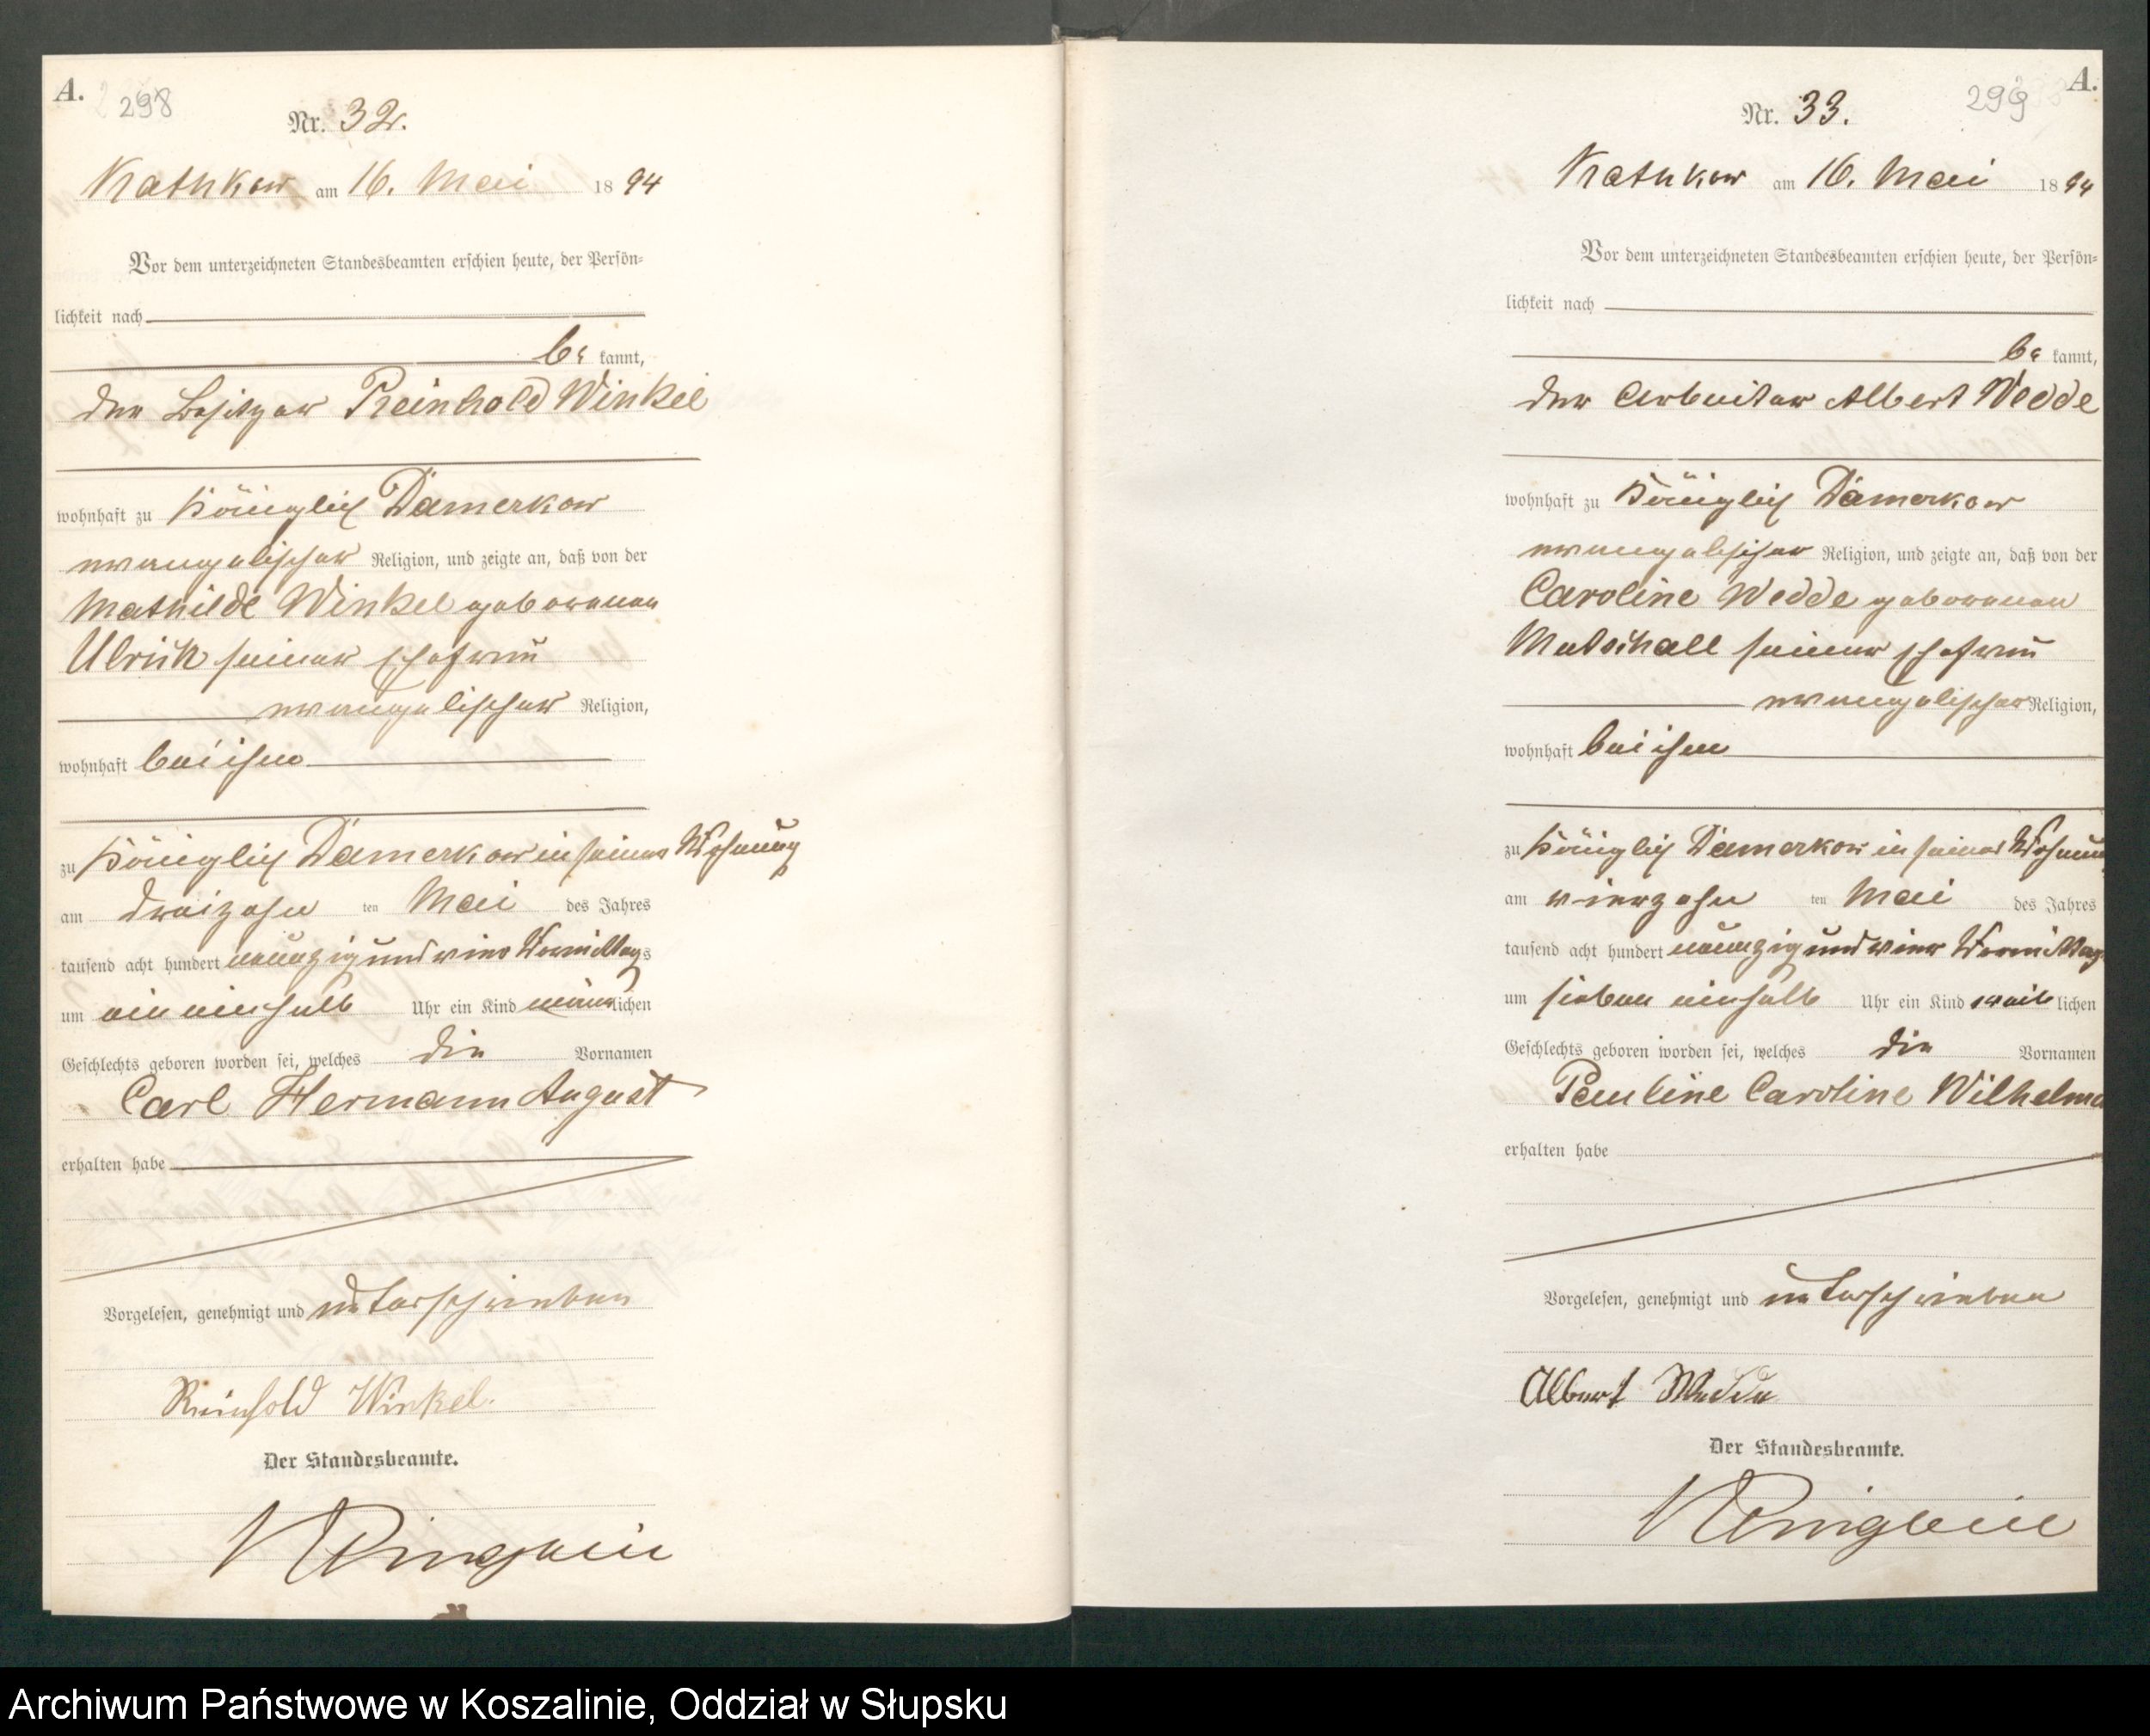 A.
298
Nr. 32.
Rathkow am 16. Mai 1894
Vor dem unterzeichneten Standesbeamten erschien heute, der Persön=
lichkeit nach
be kannt,
der Besitzer Reinhold Winkel
wohnhaft zu Königlich Damerkow
evangelischer Religion, und zeigte an, daß von der
Mathilde Winkel geborenen
Ulrich seiner Ehefrau
evangelischer Religion,
wohnhaft bei ihm
zu Königlich Damerkow in seiner Wohnung
am dreizehn ten Mai des Jahres
tausend acht hundert neunzig und vier Vormittags
um ein einhalb Uhr ein Kind männlichen
Geschlechts geboren worden sei, welches die Vornamen
Carl Hermann August
erhalten habe
Vorgelesen, genehmigt und unterschrieben
Reinhold Winkel.
Der Standesbeamte.
A.
299
Nr. 33.
Rathkow am 16. Mai 1894
Vor dem unterzeichneten Standesbeamten erschien heute, der Persön=
lichkeit nach
be kannt,
der Arbeiter Albert Wedde
wohnhaft zu Königlich Damerkow
evangelischer Religion, und zeigte an, daß von der
Caroline Wedde geborenen
Mutschall seiner Ehefrau
evangelischer Religion,
wohnhaft bei ihm
zu Königlich Damerkow in seiner Wohnun
am vierzehn ten Mai des Jahres
tausend acht hundert neunzig und vier Vormittags
um sieben einhalb Uhr ein Kind weib lichen
Geschlechts geboren worden sei, welches die Vornamen
Pauline Caroline Wilhelme
erhalten habe
Vorgelesen, genehmigt und unterschrieben
Albert Wedde
Der Standesbeamte.
Archiwum Państwowe w Koszalinie, Oddział w Słupsku